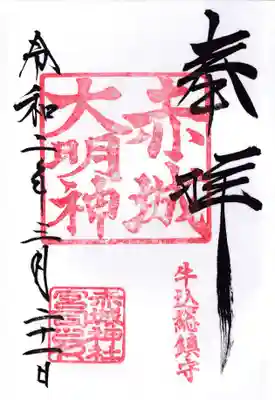 奉拝
牛込総鎮守
赤城
大明神
赤城神社
宮司之印
令和二年三月二十一日